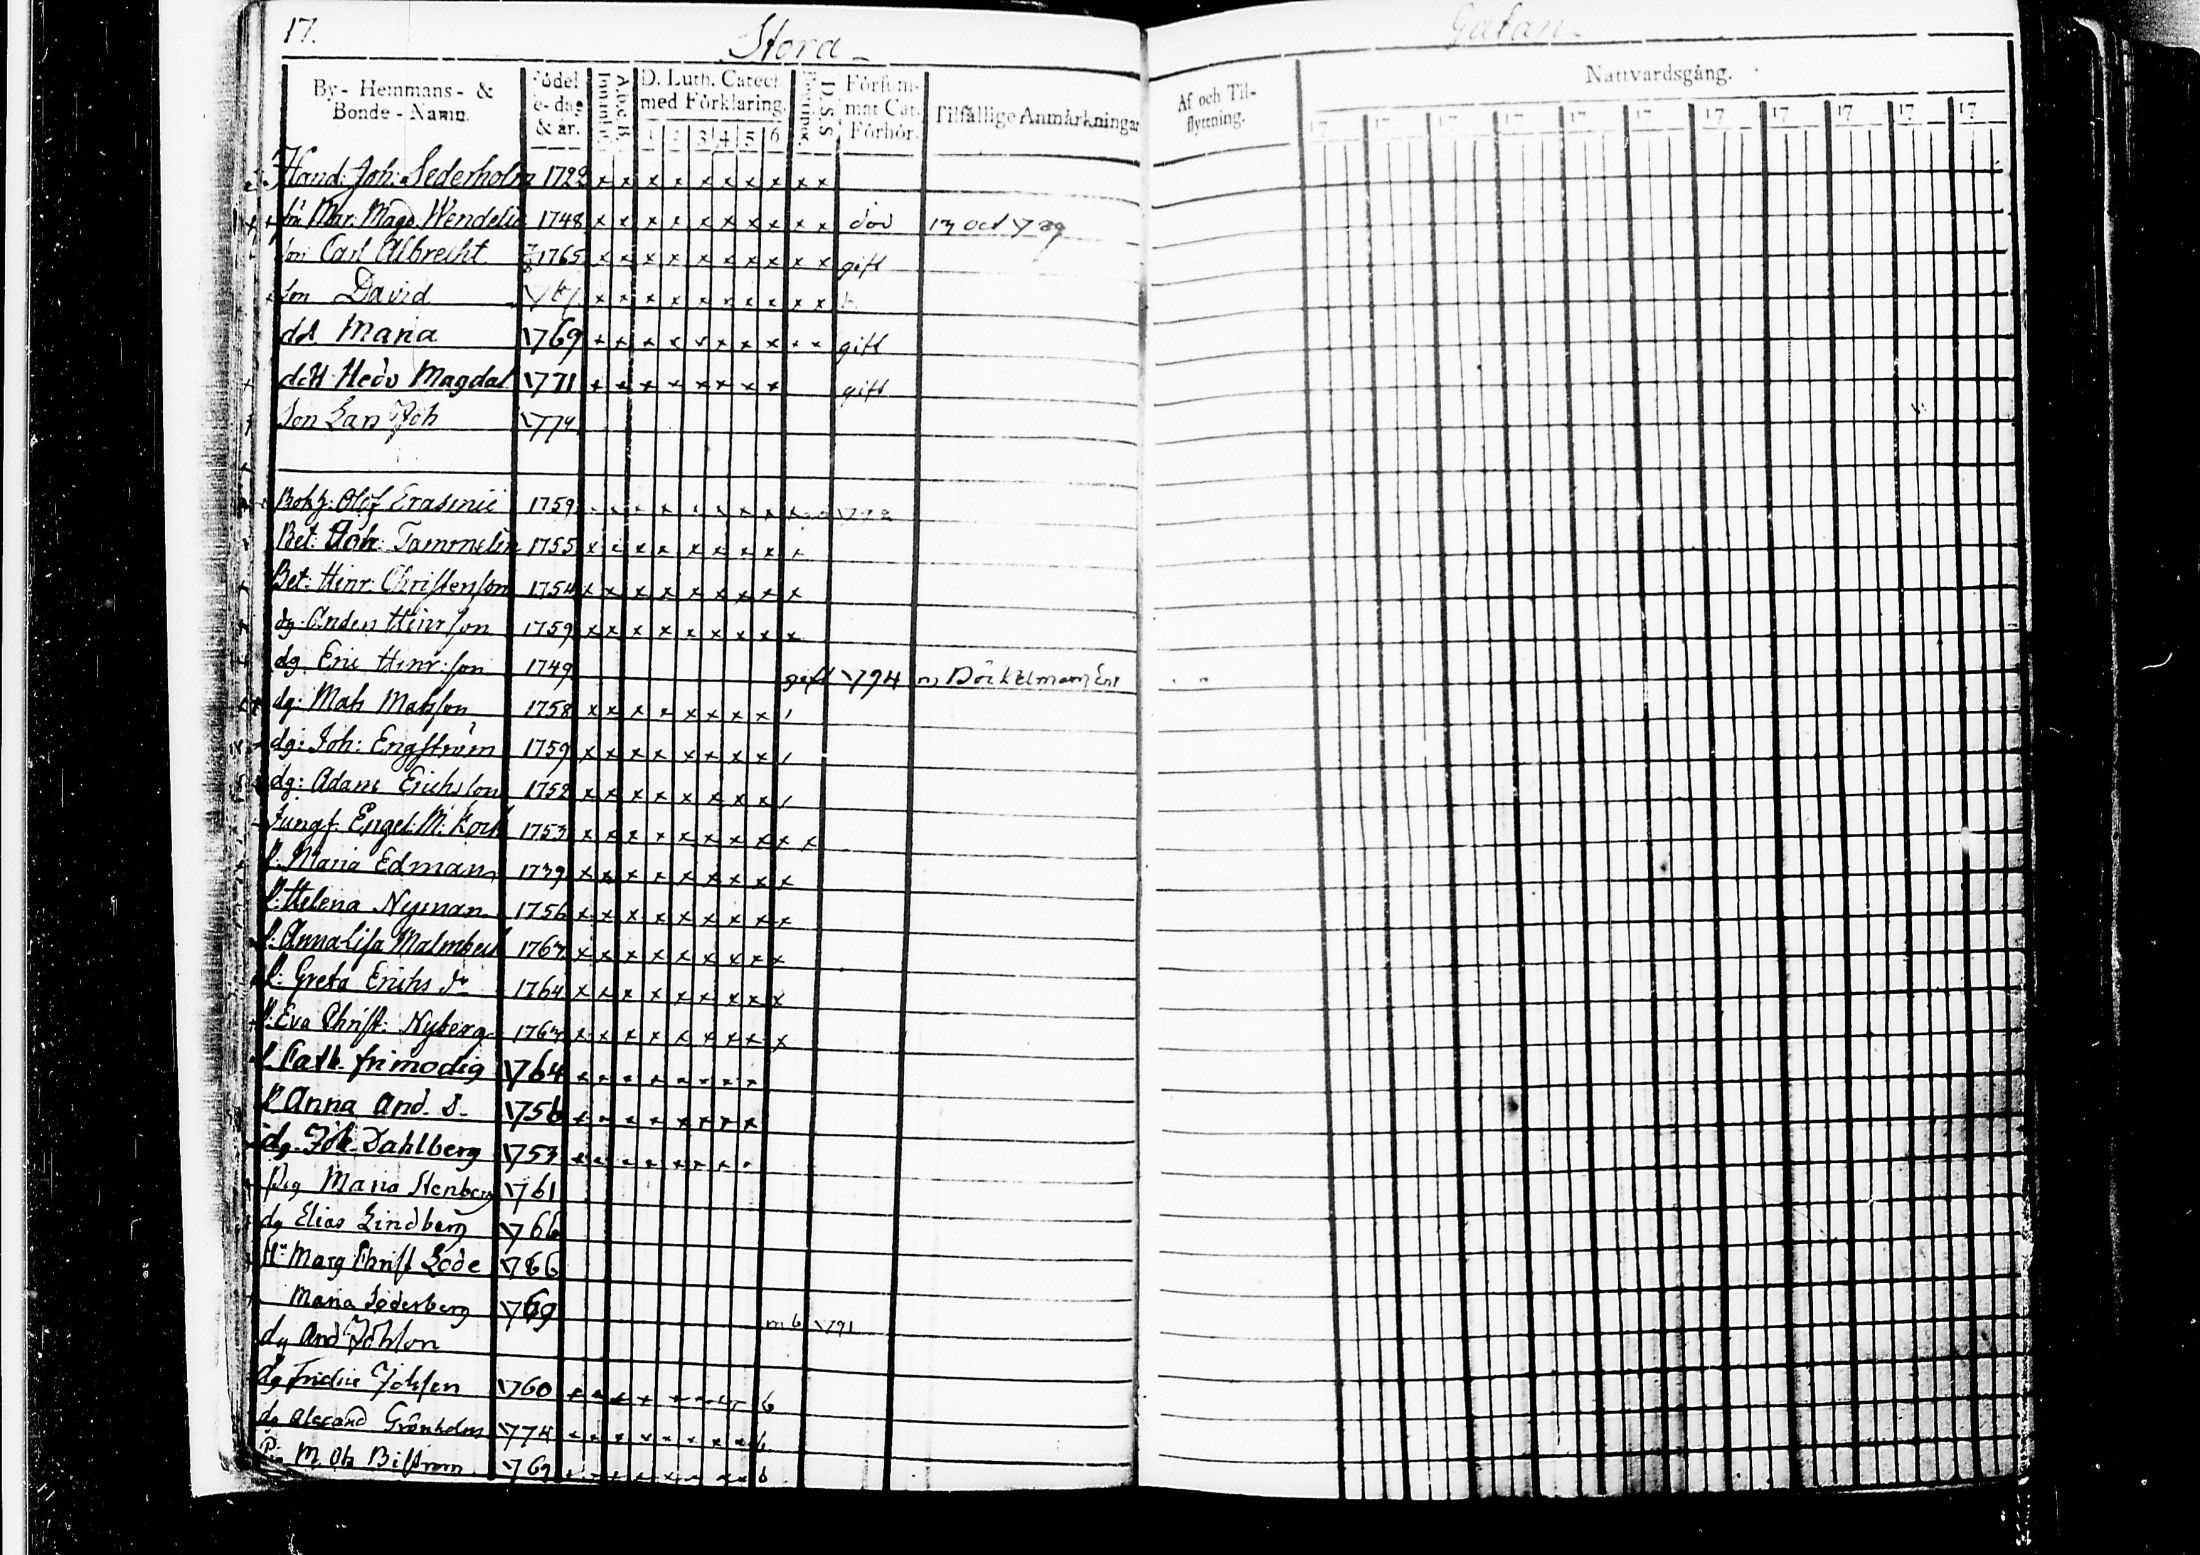 17.
Stora Gatan
By- Hemmans- & Bonde-Namn.
Födelse-dag & år.
Innanläs.
A.b.c.B.
D. Luth. Catech. med Förklaring.
1 2 3 4 5 6
D. S. S.
Försummat Cat. Förhör.
Tilfällige Anmärkningar
Af och Tilflyttning.
Nattvardsgång.
17 17 17 17 17 17 17 17 17 17 17
Hand. Joh: Sederholm 1722 x x x x x x x x x x
Mar. Magd. Wendelia 1748 x x x x x x x x x x död 13 oct 789
Son Carl Albrecht 1765 x x x x x x x x x x gift
Son David x x x x x x x x x x
dot Maria 1769 x x x x x x x x x x gift
dott Hedv Magdal 1771 x x x x x x x x gift
Son Lars Joh 1774
Bokh: Olof Erasmie 1759
Bet: Joh: Tammelin 1755 x x x x x x x x x
Bet: Hinr: Christenson 1754 x x x x x x x x x
dg. Anders Hinrson 1759 x x x x x x x x x
dg. Eric Hinr:son 1749 gift 1794 m
dg: Mats Matsson 1758 x x x x x x x x
dg: Joh: Engström 1759 x x x x x x x x
dg: Adam Erichsson 1752 x x x x x x x x
Jungf. Engel: M: Koch 1753 x x x x x x x x x x
P. Maria Edman 1739 x x x x x x x x x
P: Helena Nyman 1756 x x x x x x x x x
P: Anna Lisa Malmberg 1767 x x x x x x x x x
P: Greta Erichs dr 1764 x x x x x x x x x
P: Eva Christ: Nyberg 1767 x x x x x x x x x
P. Cath. frimodig 1764
P Anna And. D. 1756
dg. Joh. Dahlberg 1753
Pig Maria Stenberg 1761
dg Elias Lindberg 1766
Marg Christ Lode 1766
Maria Söderberg 1769
dg And Johson m b 1791
dg Fridric Johsson 1760 b
dg Alexand Grönholm 1774 b
P. M. Biström 1769 b